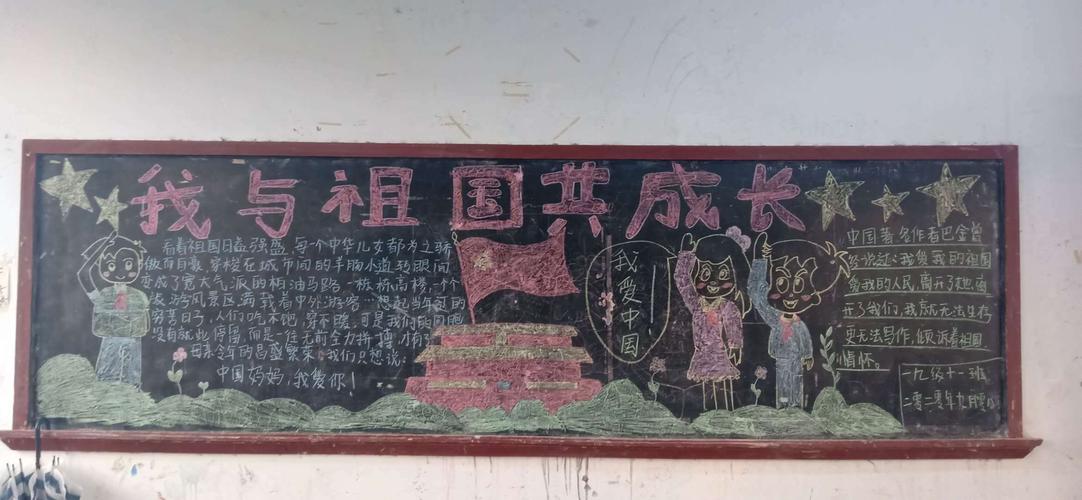 我与祖国共成长
看着祖国日益强盛,每一个中华儿女都为之骄
傲而自豪,穿梭在城市间的羊肠小道转眼间
变成了宽大气派的柏油马路,一栋栋高楼,一个个
旅游风景区,满载着中外游客…想起当年过的
穷苦日子,人们吃不饱,穿不暖,可是我们的同胞
没有就此停留,而是一往无前全力拼搏,才有了
母亲今年的昌盛繁荣。我们只想说:
中国妈妈,我爱你!
我爱中国
中国著名作者巴金曾
经说过:心我爱我的祖国
爱我的人民,离开了她,离
开了我们,我就无法生存
更无法写作,倾诉着祖国
情怀。
一九级十一班
二零二零年九月